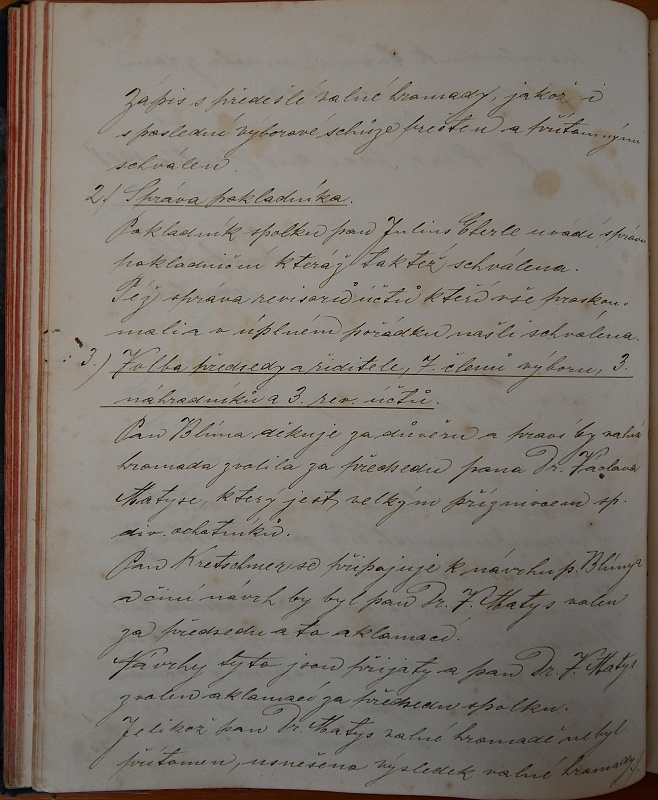 Zápis s předešlé valné hromady, jakož i
s poslední výborové schůze přečten a přítomnými
schválen.
2.) Správa pokladníka.
Pokladník spolku pan Julius Eberle uvádí správu
pokladniční kteráž taktéž schválena.
Též správa revisorů účtů kteří vše proskou-
mali a v úplném pořádku našli schválena.
3.) Volba předsedy a řiditele, 7. členů výboru, 3.
náhradníků a 3. rev. účtů.
Pan Blíma děkuje za důvěru a praví by valná
hromada zvolila za předsedu pana Dr. Václava
Matyse, který jest velkým příznivcem sp.
div. ochotníků.
Pan Kretschmer se připojuje k návrhu p. Blímy
a činí návrh by byl pan Dr. V. Matys volen
za předsedu a to aklamací.
Návrhy tyto jsou přijaty a pan Dr. V. Matys
zvolen aklamací za předsedu spolku.
Jelikož pan Dr. Matys valné hromadě nebyl
přítomen, usnešeno výsledek valné hromady